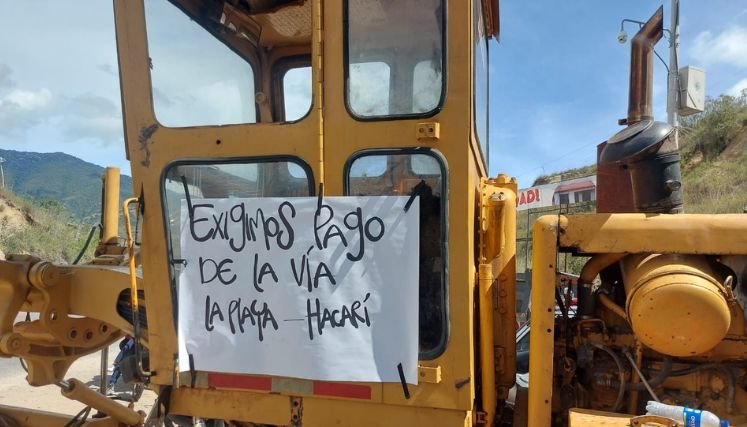 EXIgIMOS PAgO
DE LA VÍA
LA PLAYA - HACARÍ
DAD!